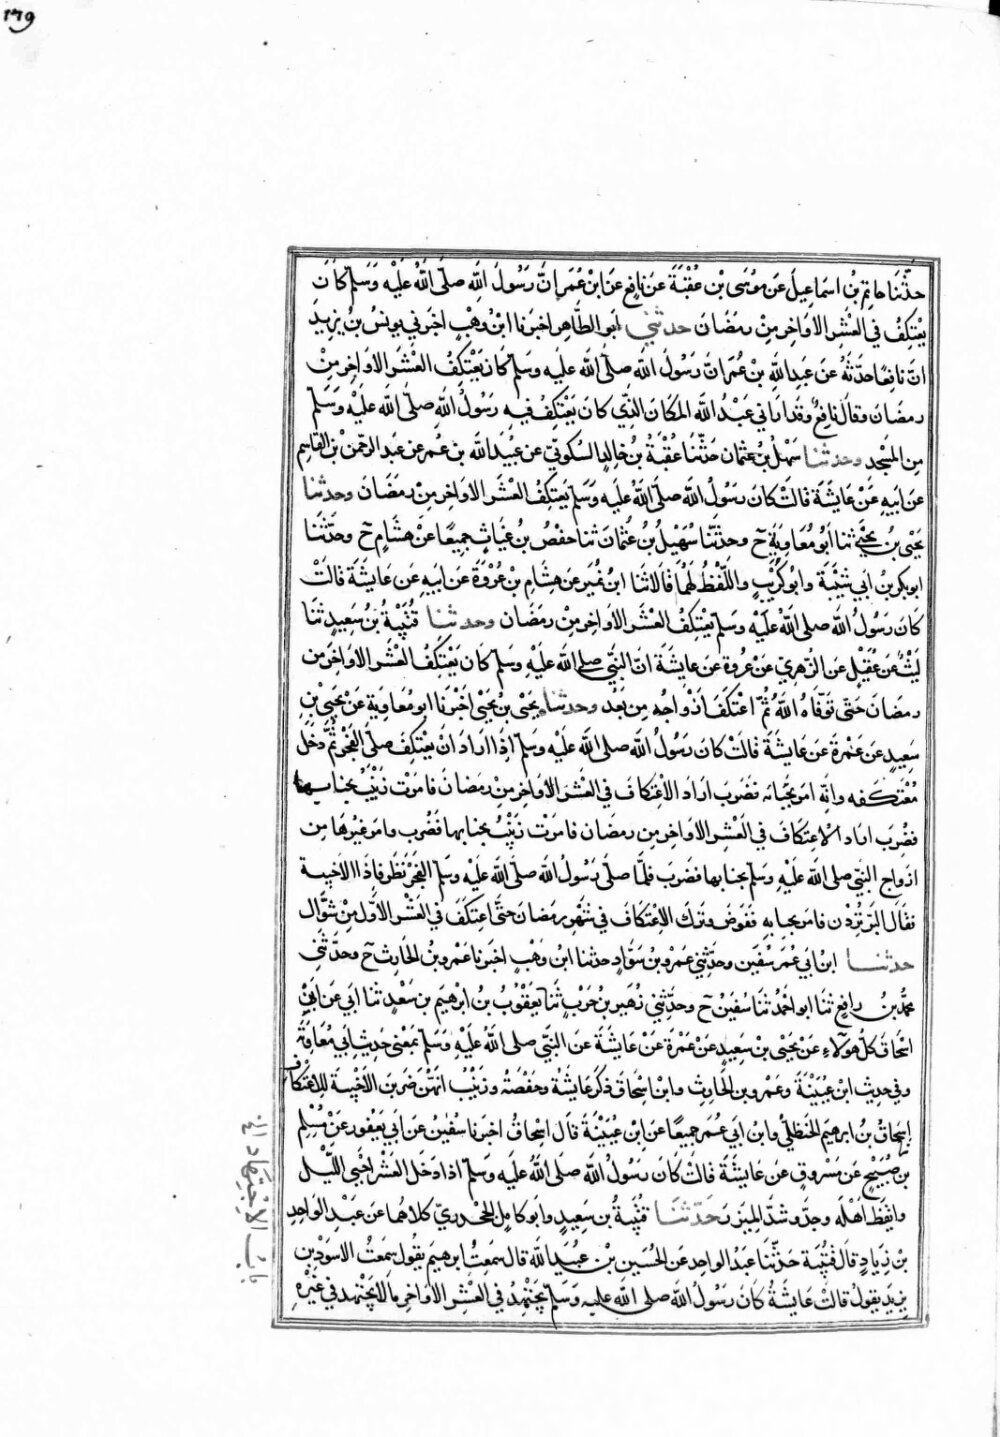 حدثنا حاتم بن اسماعيل عن موسى بن عقبة عن نافع عن ابن عمر ان رسول الله صلى الله عليه وسلم كان
يعتكف في العشر الاواخر من رمضان حدثني ابو الطاهر اخبرنا ابن وهب اخبرني يونس بن يزيد
ان نافعا حدثه عن عبد الله بن عمر ان رسول الله صلى الله عليه وسلم كان يعتكف العشر الاواخر من
رمضان وقال نافع وقد اراني عبد الله المكان الذي كان يعتكف فيه رسول الله صلى الله عليه وسلم
من المسجد وحدثنا سهل بن عثمان حدثنا عقبة بن خالد السكوني عن عبيد الله بن عمر عن عبد الرحمن بن القاسم
عن ابيه عن عايشة قالت كان رسول الله صلى الله عليه وسلم يعتكف العشر الاواخر من رمضان وحدثنا
يحيى بن يحيى ثنا ابو معاوية ح وحدثنا سهيل بن عثمان ثنا حفص بن غياث جميعا عن هشام ح وحدثنا
ابو بكر بن ابي شيبة وابو كريب واللفظ لهما قالا ثنا ابن نمير عن هشام بن عروة عن ابيه عن عايشة قالت
كان رسول الله صلى الله عليه وسلم يعتكف العشر الاواخر من رمضان وحدثنا قتيبة بن سعيد ثنا
ليث عن عقيل عن الزهري عن عروة عن عايشة ان النبي صلى الله عليه وسلم كان يعتكف العشر الاواخر من
رمضان حتى توفاه الله ثم اعتكف ازواجه من بعد وحدثنا يحيى بن يحيى اخبرنا ابو معاوية عن يحيى بن
سعيد عن عمرة عن عايشة قالت كان رسول الله صلى الله عليه وسلم اذا اراد ان يعتكف صلى الفجر ثم دخل
معتكفه وانه امر بخبائه فضرب اراد الاعتكاف في العشر الاواخر من رمضان فامرت زينب بخبايها
فضرب اراد الاعتكاف في العشر الاواخر من رمضان فامرت زينب بخبايها فضرب وامر غيرها من
ازواج النبي صلى الله عليه وسلم بخبايها فضرب فلما صلى رسول الله صلى الله عليه وسلم الفجر نظر فاذا الاخبية
فقال البر تردن فامر بخبايه فقوض وترك الاعتكاف في شهر رمضان حتى اعتكف في العشر الاول من شوال
حدثنا ابن ابي عمر سفين وحدثني عمرو بن سواد حدثنا ابن وهب اخبرنا عمرو بن الحارث ح وحدثني
محمد بن رافع ثنا ابو احمد ثنا سفين ح وحدثني زهير بن حرب ثنا يعقوب بن ابرهيم بن سعد ثنا ابي عن ابن
اسحاق كل هولاء عن يحيى بن سعيد عن عمرة عن عايشة عن النبي صلى الله عليه وسلم بمعنى حديث ابي معاوية
وفي حديث ابن عيينة وعمرو بن الحارث وابن اسحاق ذكر عايشة وحفصة وزينب انهن ضربن الاخبية للاعتكاف
اسحاق بن ابرهيم الحنظلي وابن ابي عمر جميعا عن ابن عيينة قال اسحاق اخبرنا سفين عن ابي يعفور عن مسلم
بن صبيح عن مسروق عن عايشة قالت كان رسول الله صلى الله عليه وسلم اذا دخل العشر احيى الليل
وايقظ اهله وجد وشد الميزر حدثنا قتيبة بن سعيد وابو كامل الجحدري كلاهما عن عبد الواحد
بن زياد قال قتيبة حدثنا عبد الواحد عن الحسين بن عبيد الله قال سمعت ابرهيم يقول سمعت الاسود بن
يزيد يقول قالت عايشة كان رسول الله صلى الله عليه وسلم يجتهد في العشر الاواخر ما لا يجتهد في غيره
باب الاجتهاد